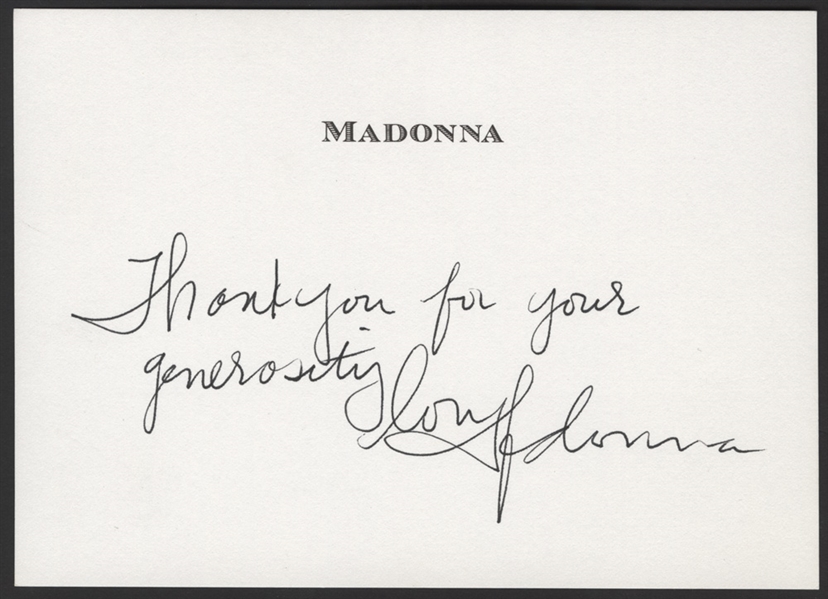 MADONNA
Thank you for your
generosity
love Madonna